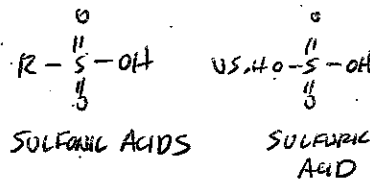 O O
|| ||
R - S - OH VS. HO - S - OH
|| ||
O O
SULFONIC ACIDS SULFURIC
ACID